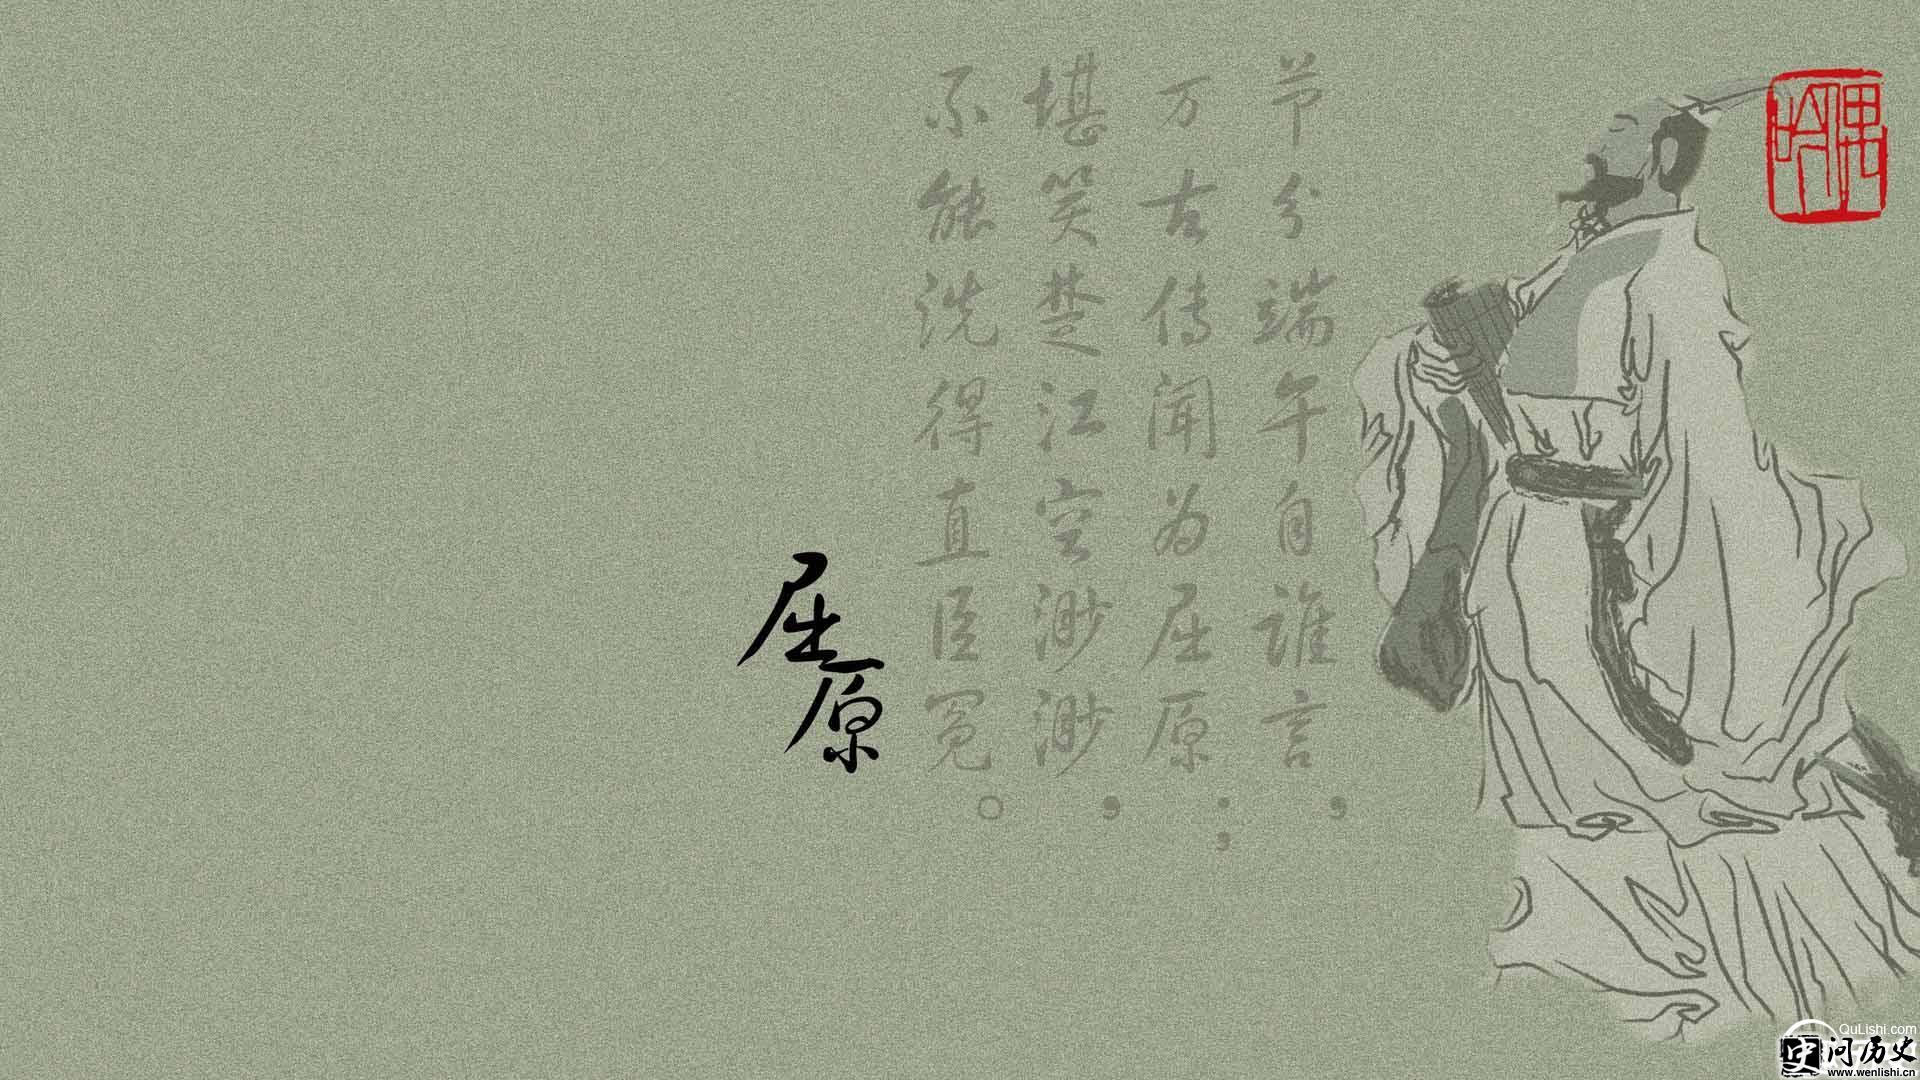 节分端午自谁言，
万古传闻为屈原；，
堪笑楚江空渺渺，
不能洗得直臣冤。
屈原
QuLishi.com
史问历史
www.wenlishi.cn